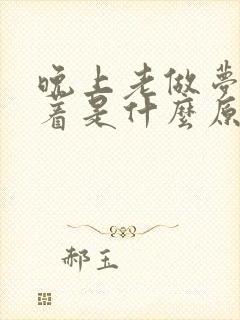 晚上老做夢
着是什麼原
郝玉